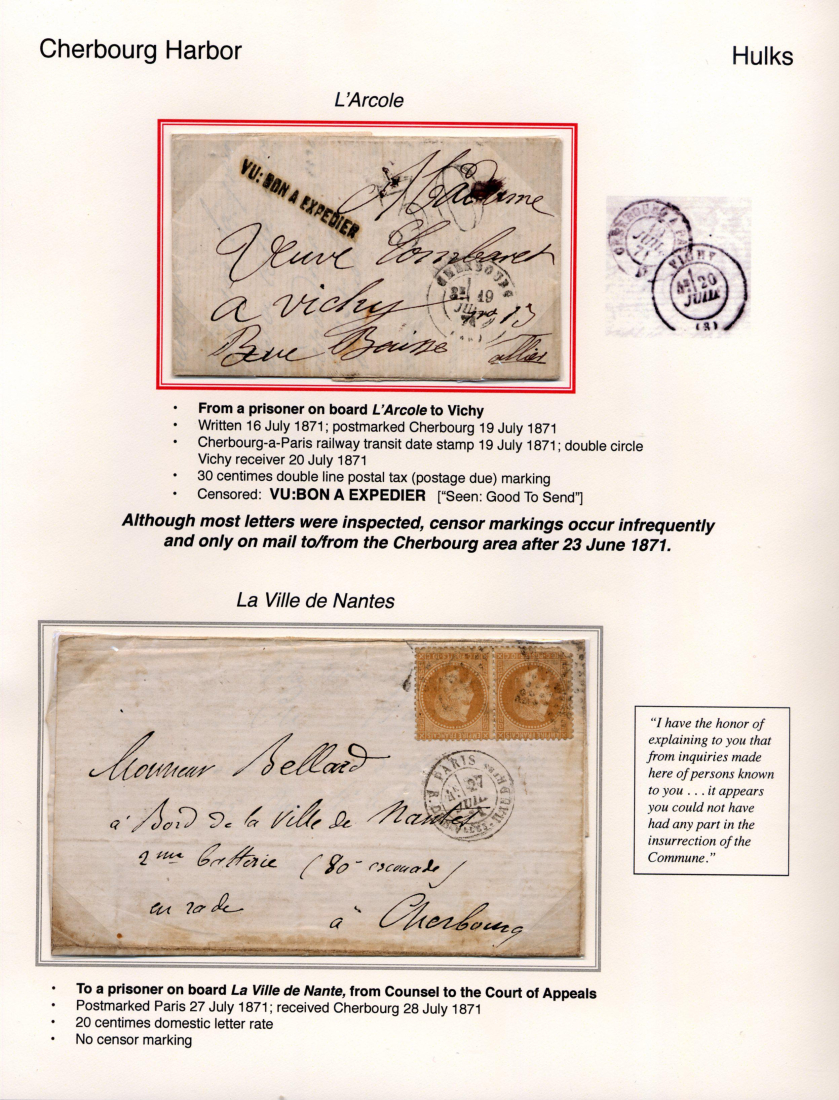 Cherbourg Harbor
Hulks
L'Arcole
VU: BON A EXPEDIER
Madame
Veuve Lombaret
à Vichy
Rue
Allier
CHERBOURG
19
CHERBOURG A PA
19
JUIL
71
VICHY
20
JUIL
(3)
• From a prisoner on board L'Arcole to Vichy
• Written 16 July 1871; postmarked Cherbourg 19 July 1871
• Cherbourg-a-Paris railway transit date stamp 19 July 1871; double circle
Vichy receiver 20 July 1871
• 30 centimes double line postal tax (postage due) marking
• Censored: VU:BON A EXPEDIER ["Seen: Good To Send"]
Although most letters were inspected, censor markings occur infrequently
and only on mail to/from the Cherbourg area after 23 June 1871.
La Ville de Nantes
PARIS
27
JUIL
Monsieur Bellard
à Bord de la Ville de Nantes
2me Batterie (80 escouade)
en rade
à Cherbourg
"I have the honor of
explaining to you that
from inquiries made
here of persons known
to you . . . it appears
you could not have
had any part in the
insurrection of the
Commune."
• To a prisoner on board La Ville de Nante, from Counsel to the Court of Appeals
• Postmarked Paris 27 July 1871; received Cherbourg 28 July 1871
• 20 centimes domestic letter rate
• No censor marking